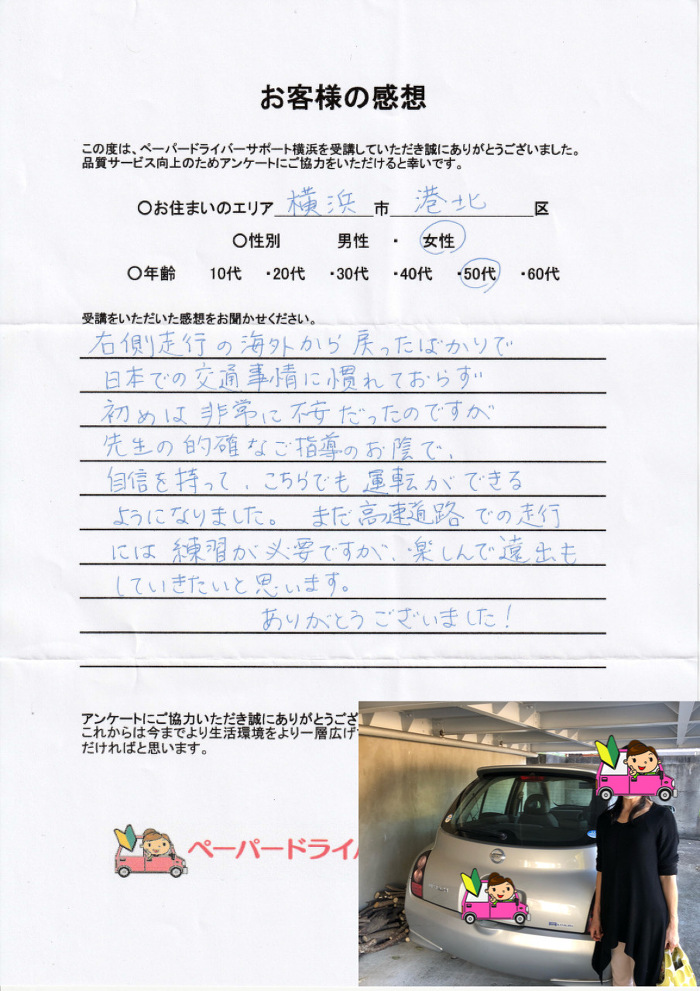 お客様の感想
この度は、ペーパードライバーサポート横浜を受講していただき誠にありがとうございました。
品質サービス向上のためアンケートにご協力をいただけると幸いです。
〇お住まいのエリア 横浜 市 港北 区
〇性別 男性 ・ 女性
〇年齢 10代 ・20代 ・30代 ・40代 ・50代 ・60代
受講をいただいた感想をお聞かせください。
右側走行の海外から戻ったばかりで
日本での交通事情に慣れておらず
初めは非常に不安だったのですが
先生の的確なご指導のお陰で、
自信を持って、こちらでも運転ができる
ようになりました。 まだ高速道路での走行
には練習が必要ですが、楽しんで遠出も
していきたいと思います。
ありがとうございました!
アンケートにご協力いただき誠にありがとうござ
これからは今までより生活環境をより一層広げ
だければと思います。
ペーパードライ